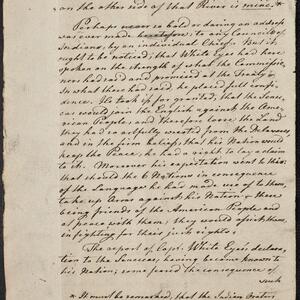 on the other side of that River is mine."
Perhaps never so bold or daring an address
was ever made heretofore, to any Council of
Indians, by an individual Chief. But it
ought to be noticed, that White Eyes had here
spoken on the strength of what the Commissio-
ners had said and promised at the Treaty.
In what these had said he placed full confi-
dence. He took up for granted, that the Sene-
cas would join the English against the Ame-
rican People, and therefore loose the Land
they had so artfully wrested from the Delawares,
and in the firm belief, that his Nation would
keep the Peace, he had a right to lay a claim
to it. Moreover his expectation went to this:
that should the 6 Nations in consequence
of the Language he had made use of to them,
take up Arms against his Nation; these
being friends of the American People, and
at peace with them; they would assist them,
in fighting for their just rights.
The report of Capt. White Eyes's declara-
tion to the Senecas, having become known to
his Nation; some feared the consequence of
such
* It must be remarked, that the Indian